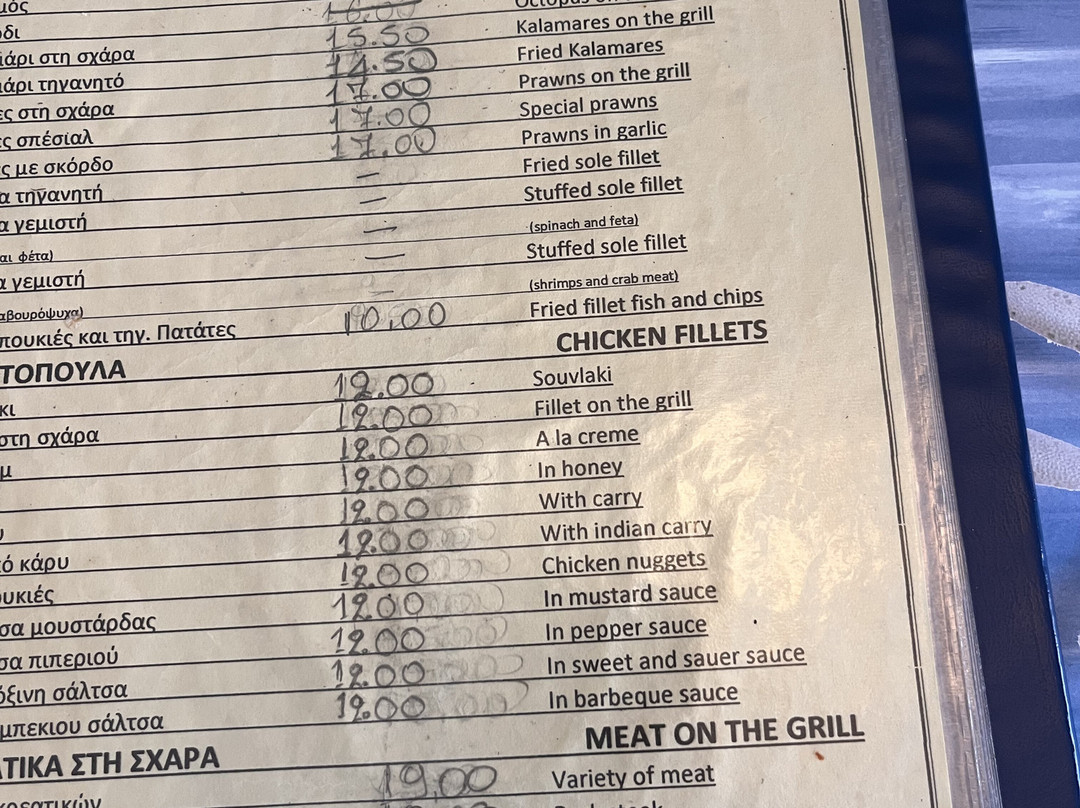 μός
δι 16.00 Octopus on
άρι στη σχάρα 15.50 Kalamares on the grill
άρι τηγανητό 14.50 Fried Kalamares
ς στη σχάρα 17.00 Prawns on the grill
ς σπέσιαλ 17.00 Special prawns
ς με σκόρδο 17.00 Prawns in garlic
α τηγανητή — Fried sole fillet
α γεμιστή — Stuffed sole fillet
αι φέτα) — (spinach and feta)
α γεμιστή — Stuffed sole fillet
αβουρόψυχα) — (shrimps and crab meat)
πουκιές και τηγ. Πατάτες 10.00 Fried fillet fish and chips
ΤΟΠΟΥΛΑ CHICKEN FILLETS
κι 12.00 Souvlaki
στη σχάρα 12.00 Fillet on the grill
μ 12.00 A la creme
12.00 In honey
υ 12.00 With carry
ό κάρυ 12.00 With indian carry
ουκιές 12.00 Chicken nuggets
σα μουστάρδας 12.00 In mustard sauce
σα πιπεριού 12.00 In pepper sauce
όξινη σάλτσα 12.00 In sweet and sauer sauce
μπεκιου σάλτσα 12.00 In barbeque sauce
ΤΙΚΑ ΣΤΗ ΣΧΑΡΑ MEAT ON THE GRILL
κρεατικών 19.00 Variety of meat